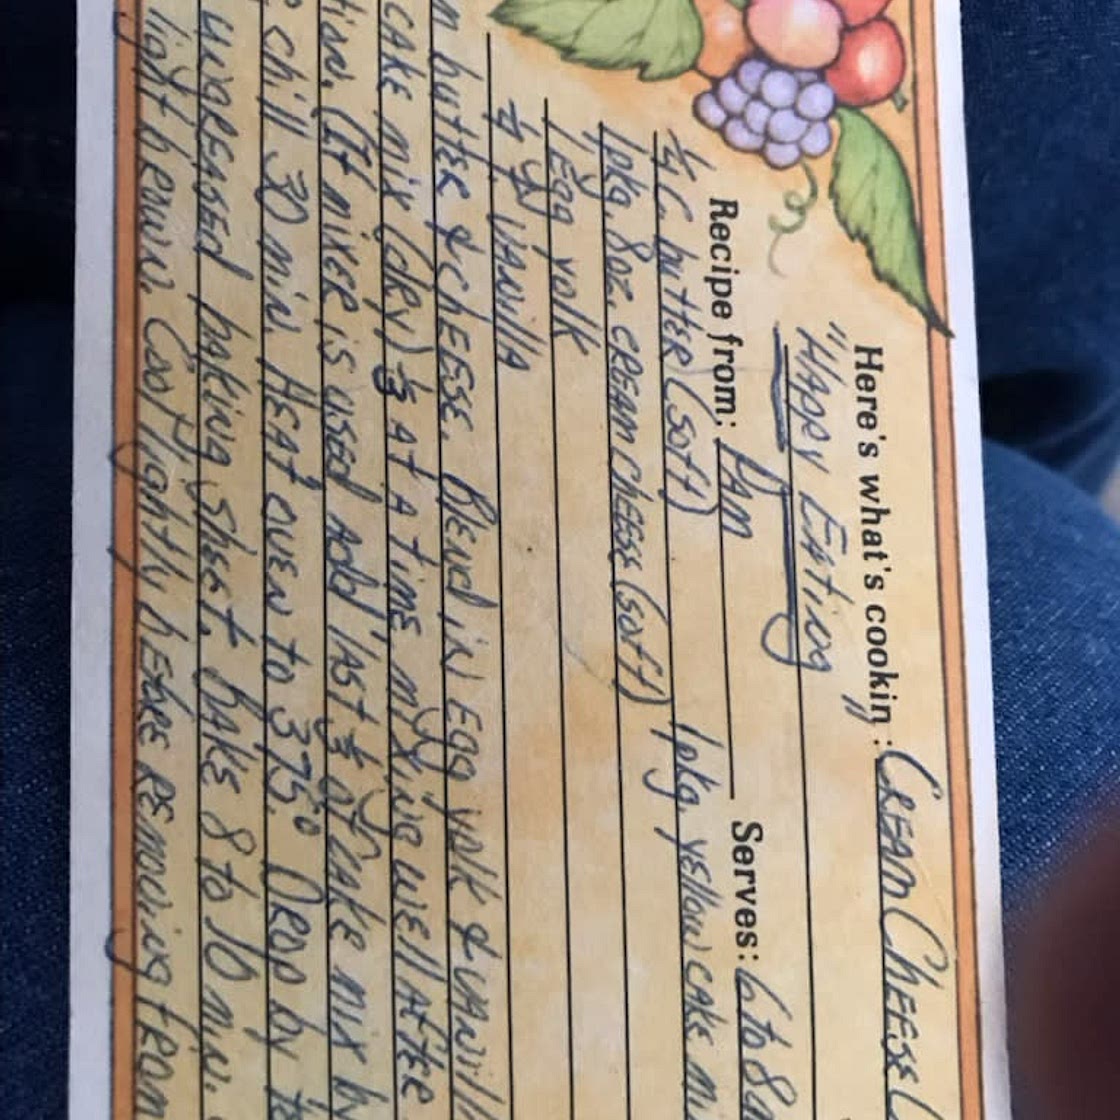 Here's what's cookin: Cream Cheese
"Happy Eating"
Recipe from: Pam Serves: 6 to 8
¼ C. butter (soft) 1 pkg. yellow cake mi
1 pkg. 8 oz. cream cheese (soft)
1 Egg yolk
vanilla
m butter & cheese. Blend in Egg yolk & vanill
cake mix (dry) ⅓ at a time mixing well after
tion. (If mixer is used add last ⅓ of cake mix b
chill 30 min. Heat oven to 375° Drop by t
ungreased baking sheet. Bake 8 to 10 min.
light brown. Cool lightly before removing from